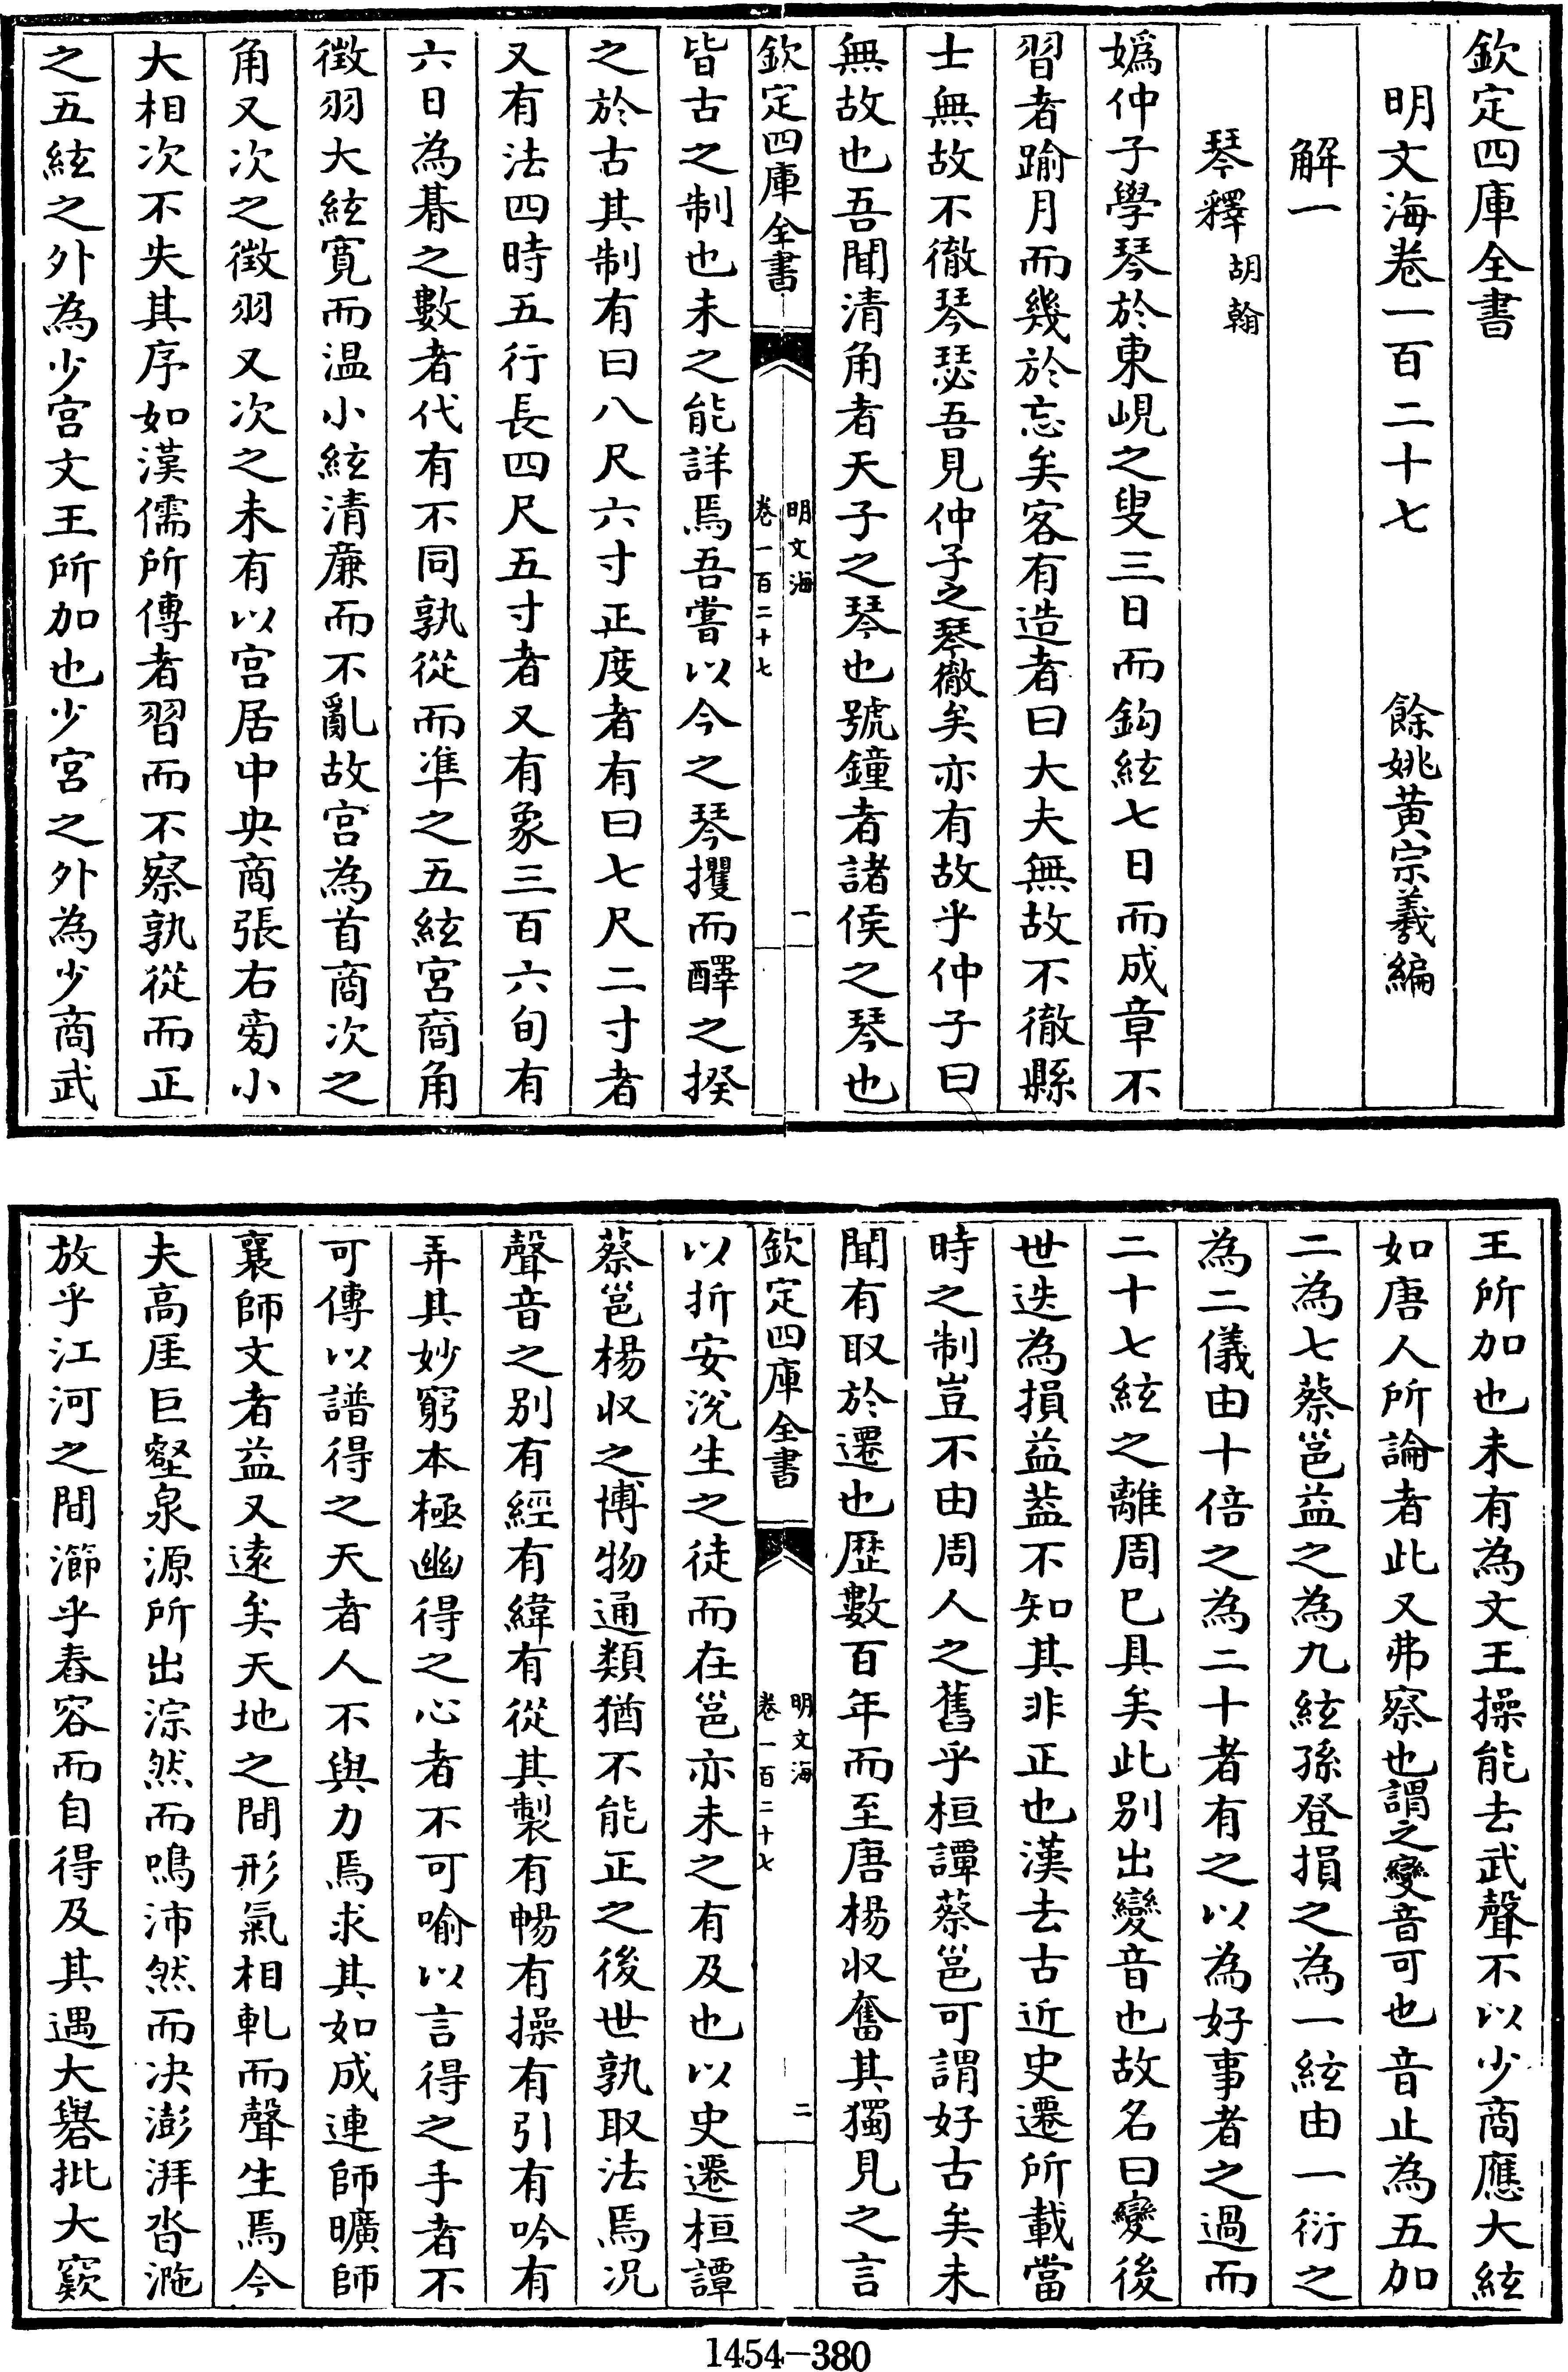 欽定四庫全書
明文海卷一百二十七
餘姚黄宗羲編
解一
琴釋胡翰
嬀仲子學琴於東峴之叟三日而鈎絃七日而成章不
習者踰月而幾於忘矣客有造者曰大夫無故不徹縣
士無故不徹琴瑟吾見仲子之琴徹矣亦有故乎仲子曰
無故也吾聞清角者天子之琴也號鐘者諸侯之琴也
欽定四庫全書
明文海
卷一百二十七
一
皆古之制也未之能詳焉吾嘗以今之琴攫而醳之揆
之於古其制有曰八尺六寸正度者有曰七尺二寸者
又有法四時五行長四尺五寸者又有象三百六旬有
六日為朞之數者代有不同孰從而凖之五絃宮商角
徵羽大絃寛而温小絃清廉而不亂故宮為首商次之
角又次之徵羽又次之未有以宮居中央商張右旁小
大相次不失其序如漢儒所傳者習而不察孰從而正
之五絃之外為少宮文王所加也少宮之外為少商武
王所加也未有為文王操能去武聲不以少商應大絃
如唐人所論者此又弗察也謂之變音可也音止為五加
二為七蔡邕益之為九絃孫登損之為一絃由一衍之
為二儀由十倍之為二十者有之以為好事者之過而
二十七絃之離周已具矣此别出變音也故名曰變後
世迭為損益葢不知其非正也漢去古近史遷所載當
時之制豈不由周人之舊乎桓譚蔡邕可謂好古矣未
聞有取於遷也歴數百年而至唐楊收奮其獨見之言
欽定四庫全書
明文海
卷一百二十七
二
以折安涗生之徒而在邕亦未之有及也以史遷桓譚
蔡邕楊收之博物通類猶不能正之後世孰取法焉况
聲音之别有經有緯有從其製有暢有操有引有吟有
弄其妙窮本極幽得之心者不可喻以言得之手者不
可傳以譜得之天者人不與力焉求其如成連師曠師
襄師文者益又遠矣天地之間形氣相軋而聲生焉今
夫高厓巨壑泉源所出淙然而鳴沛然而决澎湃沓㴰
放乎江河之間瀄乎舂容而自得及其遇大礐批大窾
1454-380